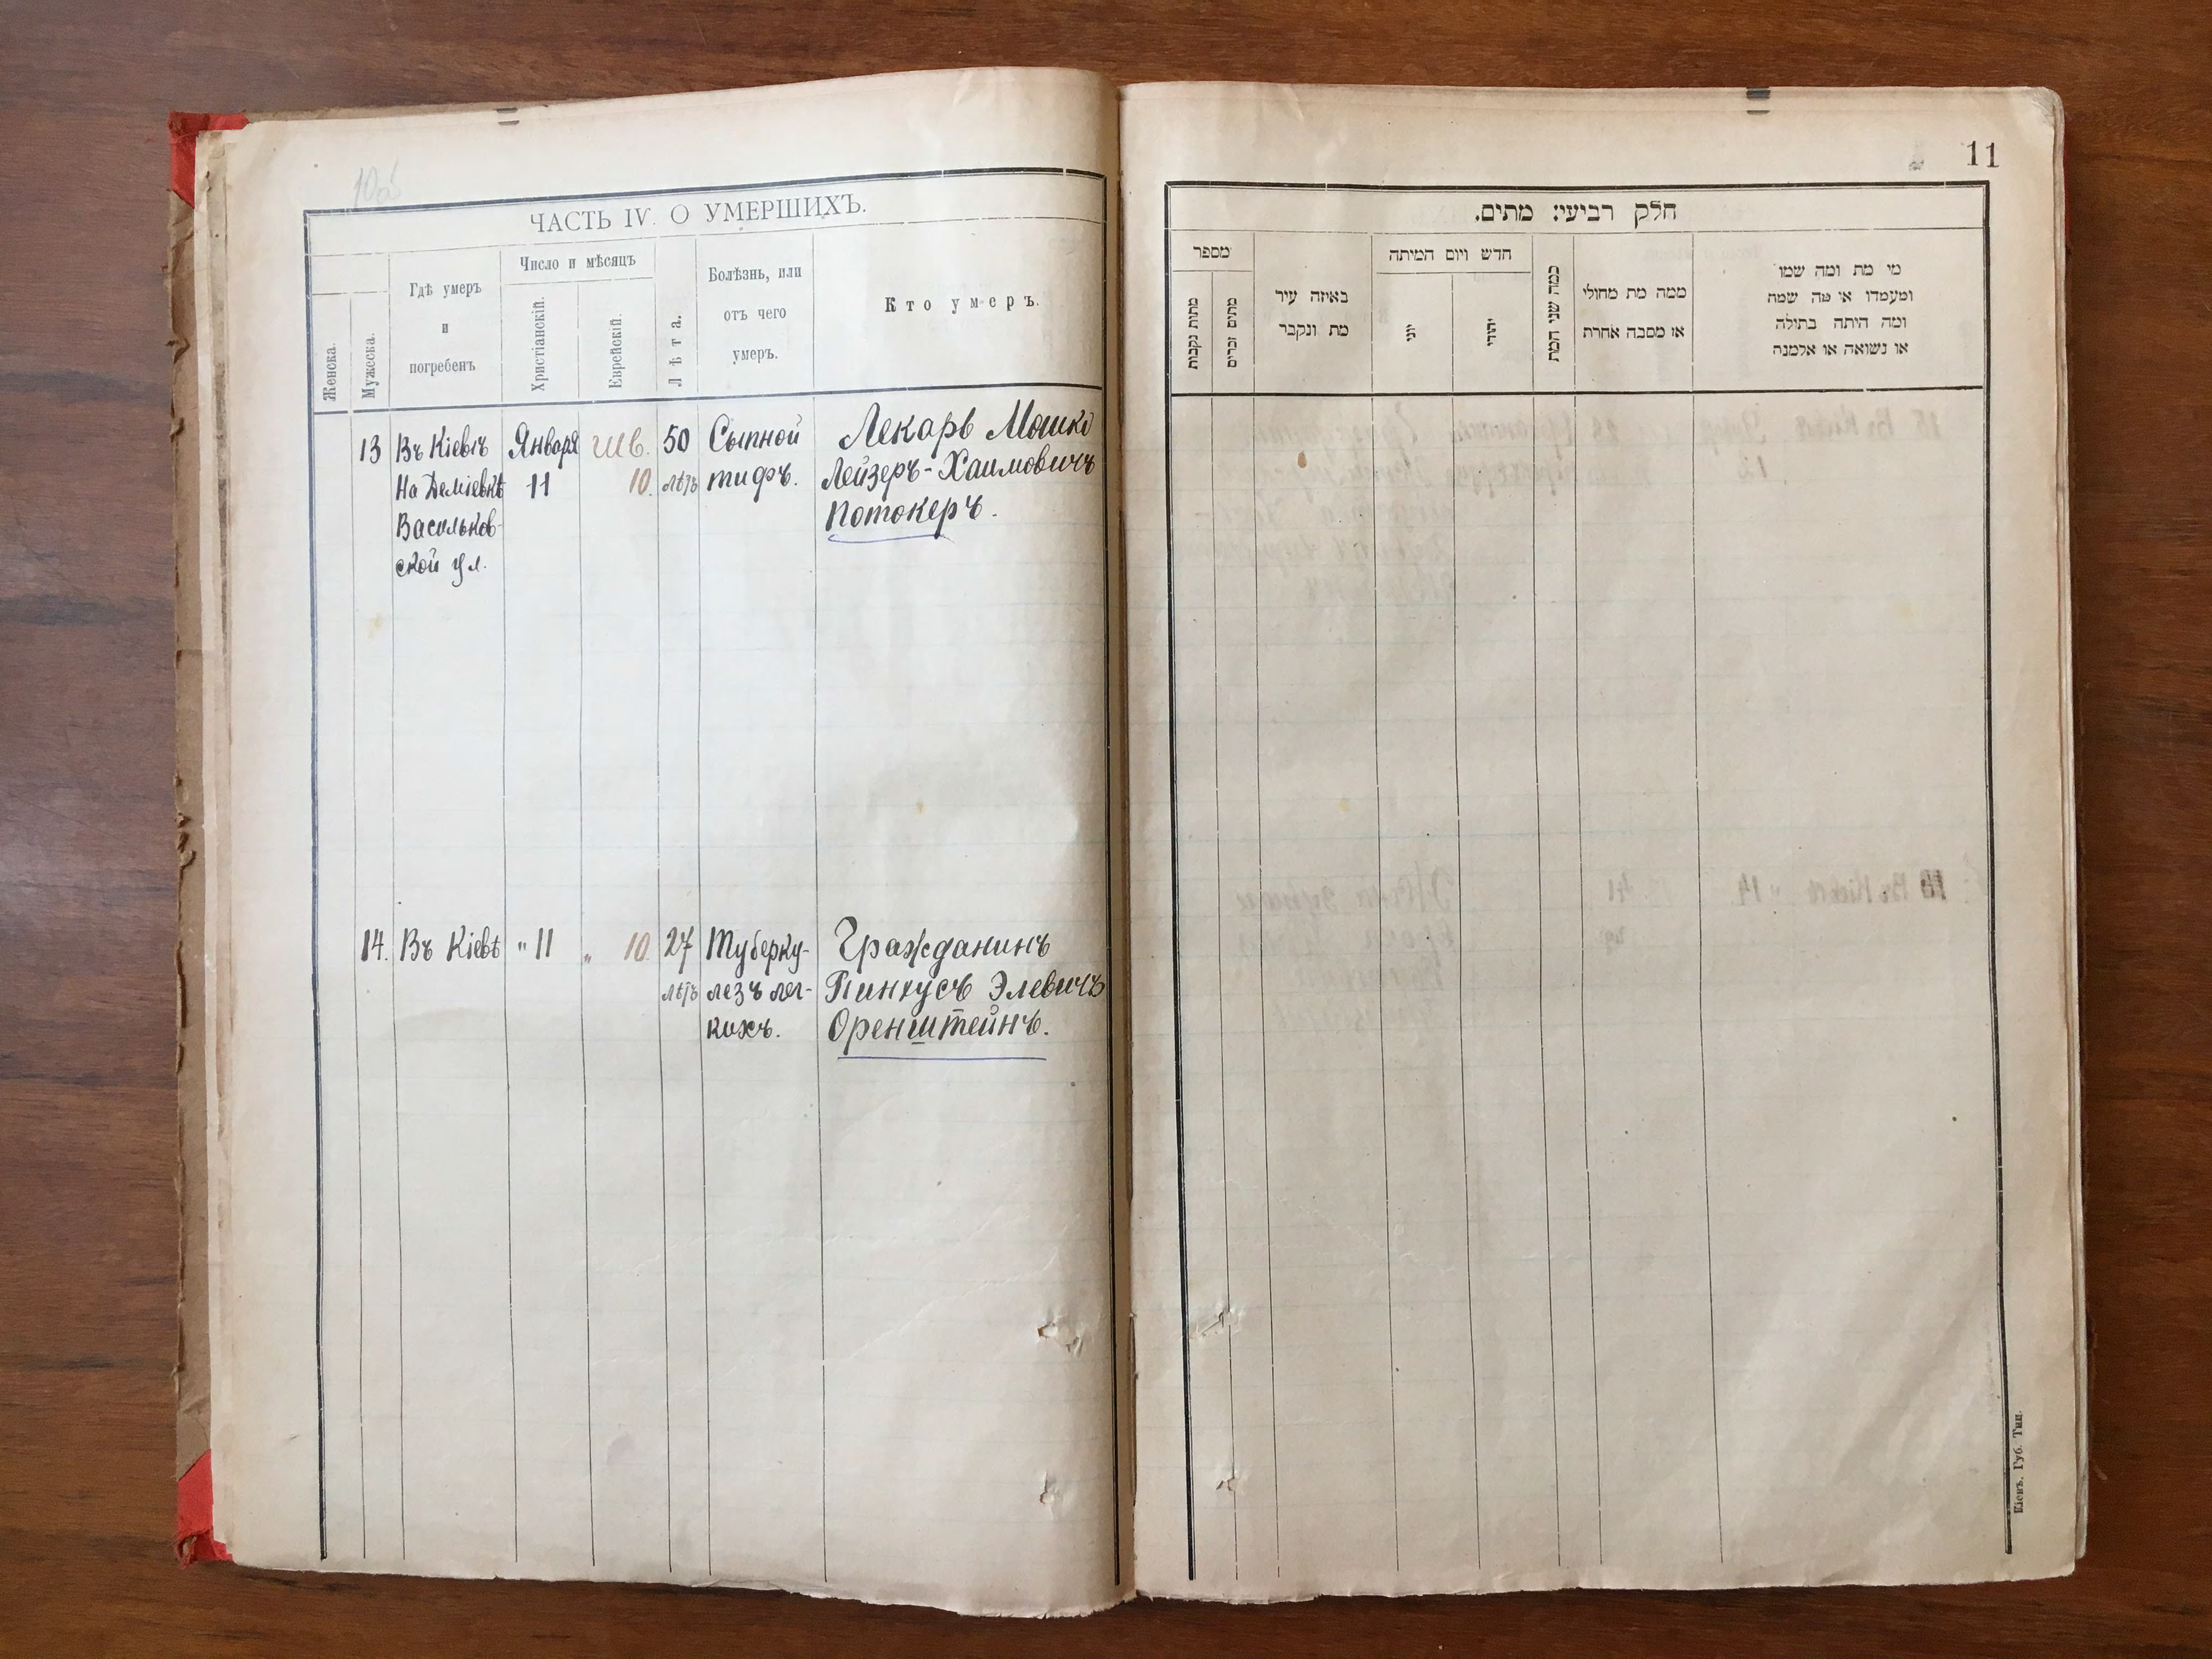 10об
ЧАСТЬ IV. О УМЕРШИХЪ.
Женска.
Мужеска.
Гдѣ умеръ
и
погребенъ
Число и мѣсяцъ
Христіанскій.
Еврейскій.
Лѣта.
Болѣзнь, или
отъ чего
умеръ.
Кто умеръ.
13 Въ Кіевѣ Января Шв. 50 Сыпной Лекарь Мошко
На Деміевкѣ 11 10. лѣтъ тифъ. Лейзеръ-Хаимовичъ
Васильков- Потокеръ.
ской ул.
14. Въ Кіевѣ " 11 " 10. 27 Туберку- Гражданинъ
лѣтъ лезъ лег- Пинхусъ Элевичъ
кихъ. Оренштейнъ.
11
חלק רביעי: מתים.
מספר
מתות נקבות
מתים זכרים
באיזה עיר
מת ונקבר
חדש ויום המיתה
יוני
יהודי
כמה שני המת
ממה מת מחולי
או מסבה אחרת
מי מת ומה שמו
ומעמדו או מה שמה
ומה היתה בתולה
או נשואה או אלמנה
Кіевъ. Губ. Тип.